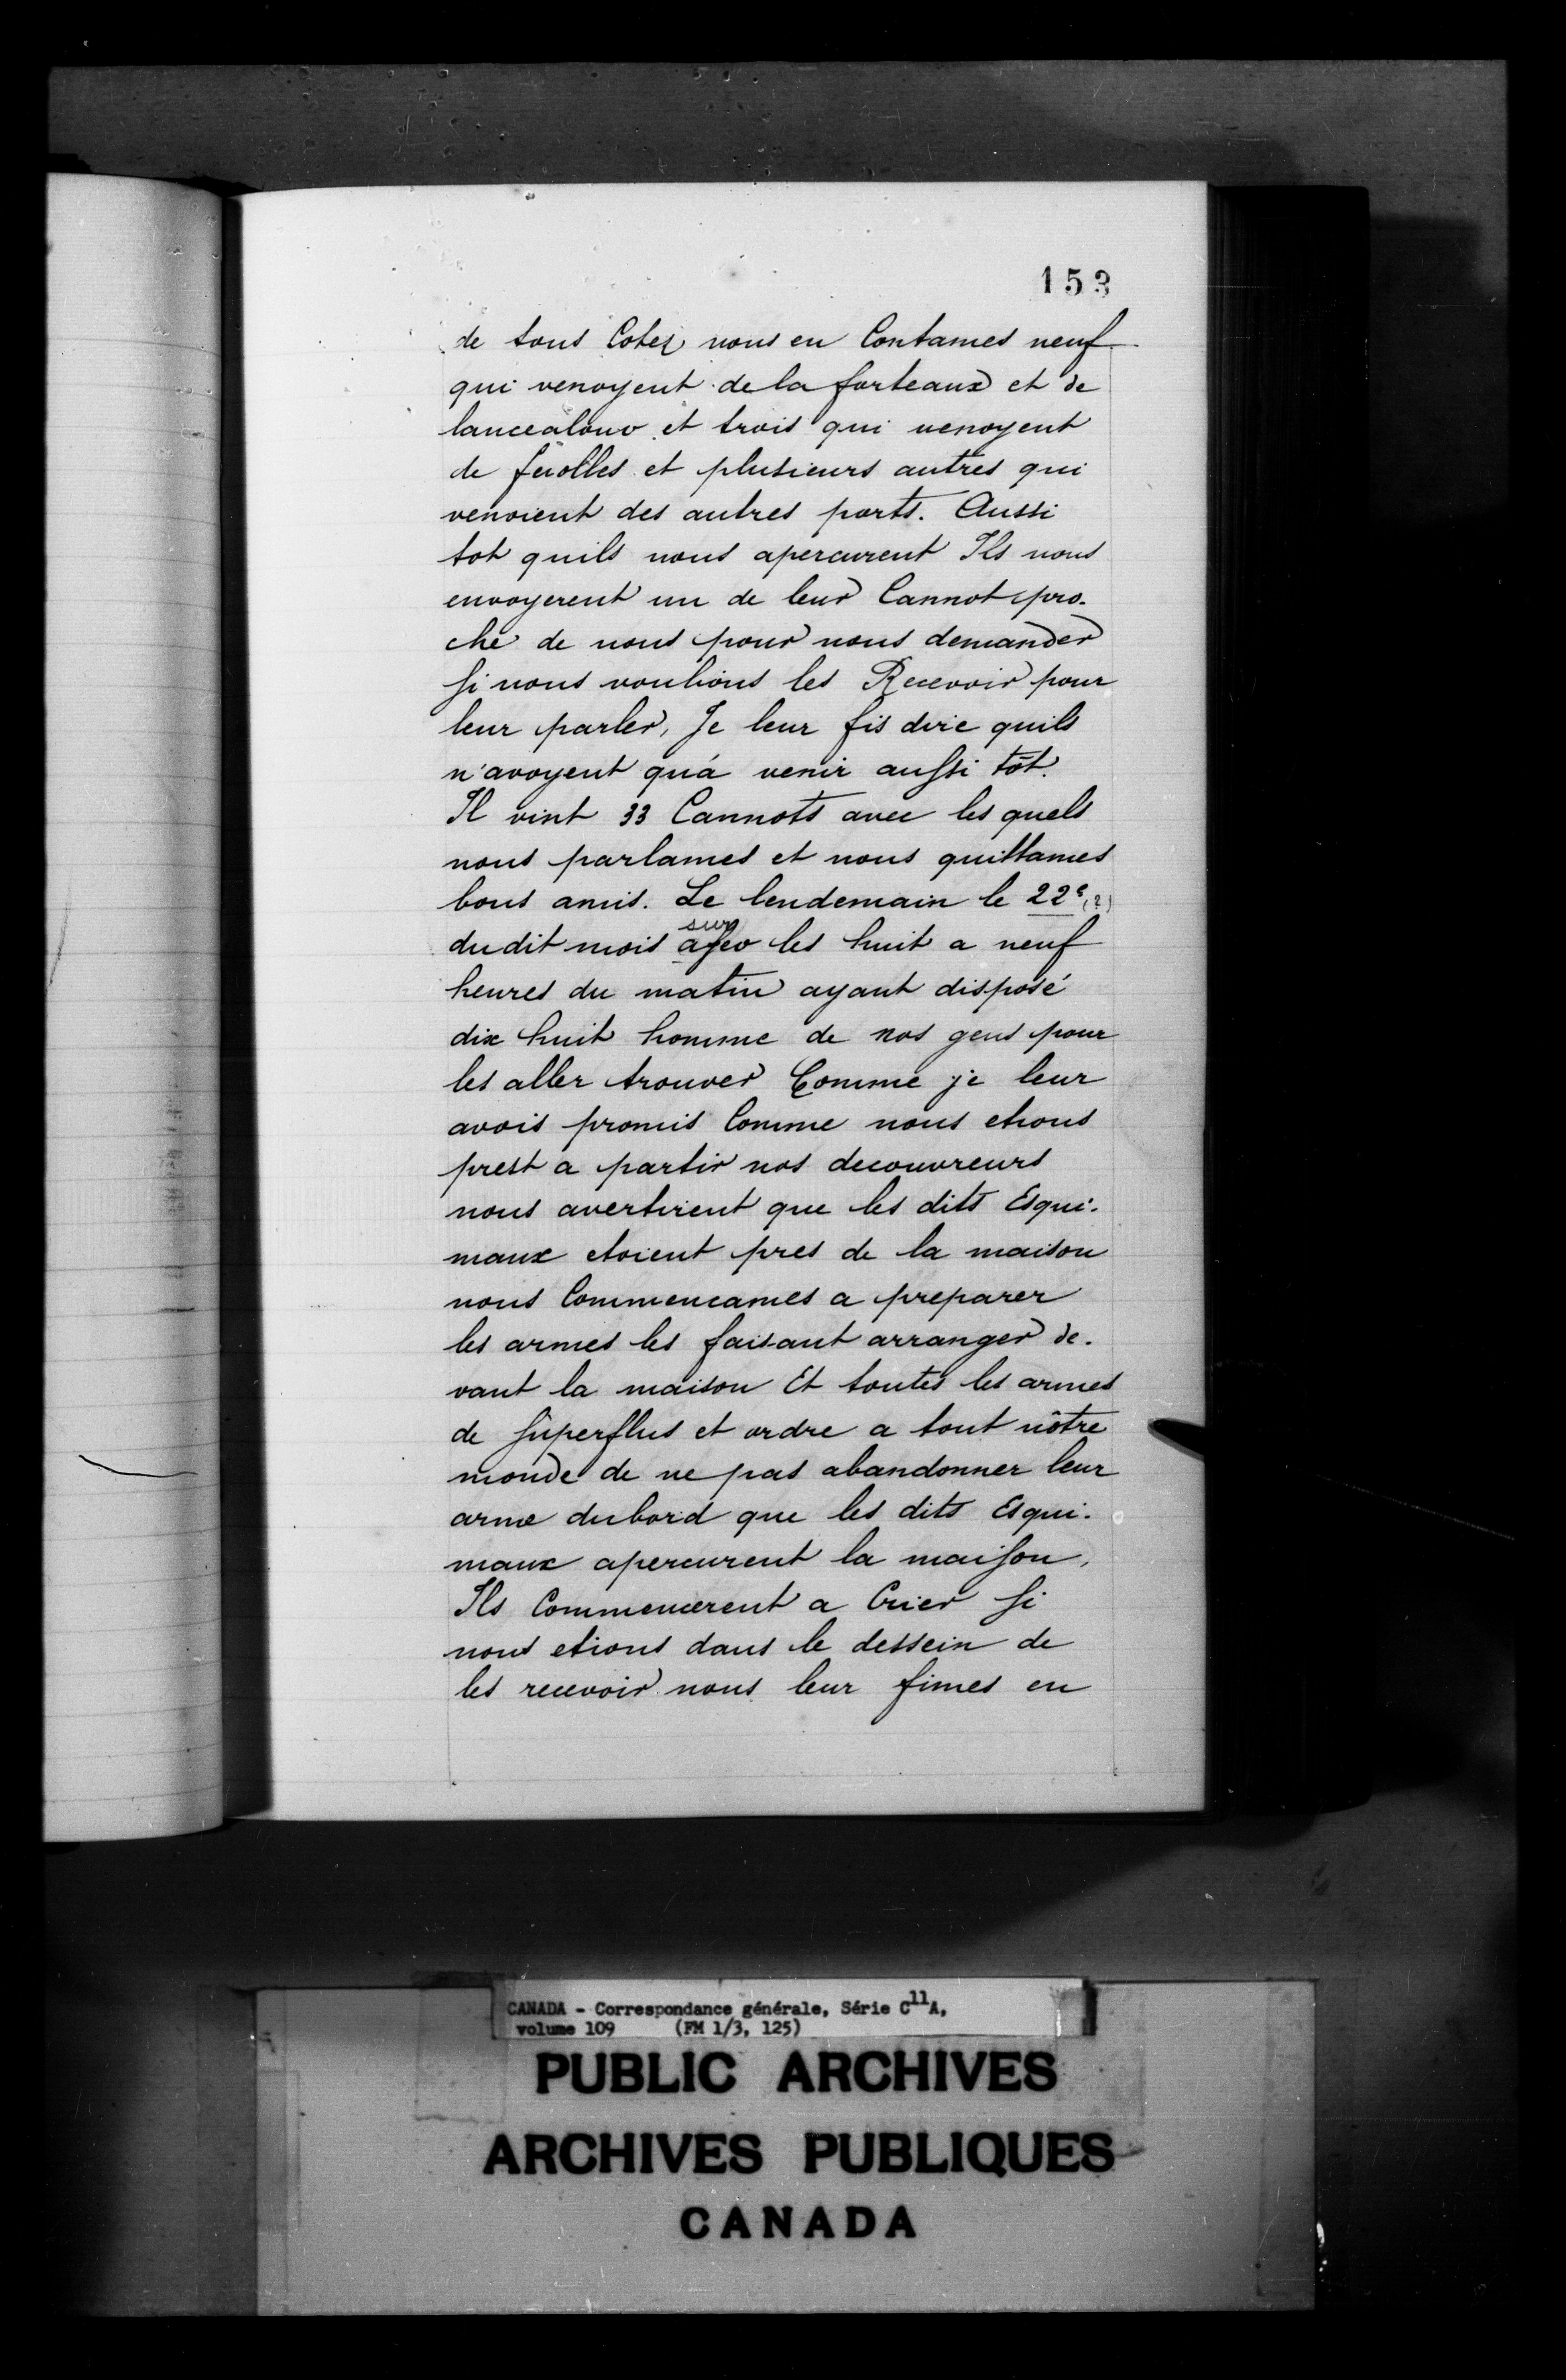 153
de tous Cotez nous en Contames neuf
qui venoyent de la forteaux et de
lancealouv et trois qui venoyent
de ferolles et plusieurs autres qui
venoient des autres ports. Aussi
tot quils nous apercurent Ils nous
envoyerent un de leur Cannot pro-
che de nous pour nous demander
si nous voulions les Recevoir pour
leur parler, Je leur fis dire quils
n'avoyent qu'á venir aussi tôt.
Il vint 33 Cannots avec les quels
nous parlames et nous quittames
bons amis. Le lendemain le 22e (?)
sur
dudit mois les huit a neuf
heures du matin ayant disposé
dix huit homme de nos gens pour
les aller trouver Comme je leur
avois promis Comme nous etions
prest a partir nos decouvreurs
nous avertirent que les dits Esqui-
maux etoient pres de la maison
nous Commencames a preparer
les armes les faisant arranger de-
vant la maison Et toutes les armes
de superflus et ordre a tout nôtre
monde de ne pas abandonner leur
arme dubord que les dits Esqui-
maux apercurent la maison,
Ils Commencerent a Crier si
nous etions dans le dessein de
les recevoir nous leur fimes en
CANADA - Correspondance générale, Série C11A,
volume 109 (FM 1/3, 125)
PUBLIC ARCHIVES
ARCHIVES PUBLIQUES
CANADA